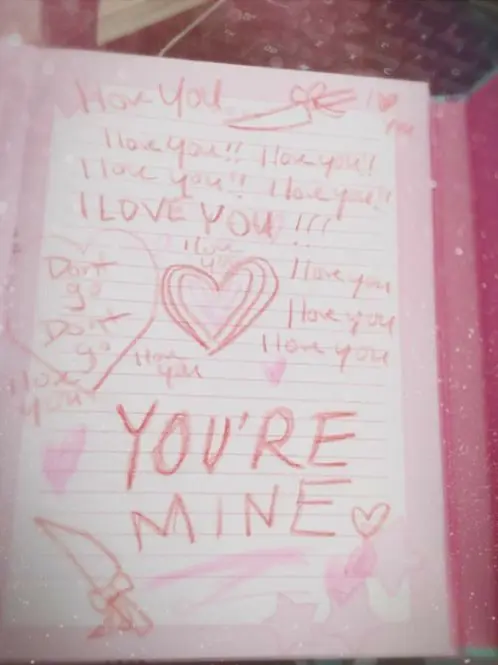 I love You
I
I love you!! I love you!!
I love you!! I love you!!
I LOVE YOU !!!
I love
you
I love you
Don't
go
I love you
Don't
go
I love you
I love
you
I love
you
YOU'RE
MINE